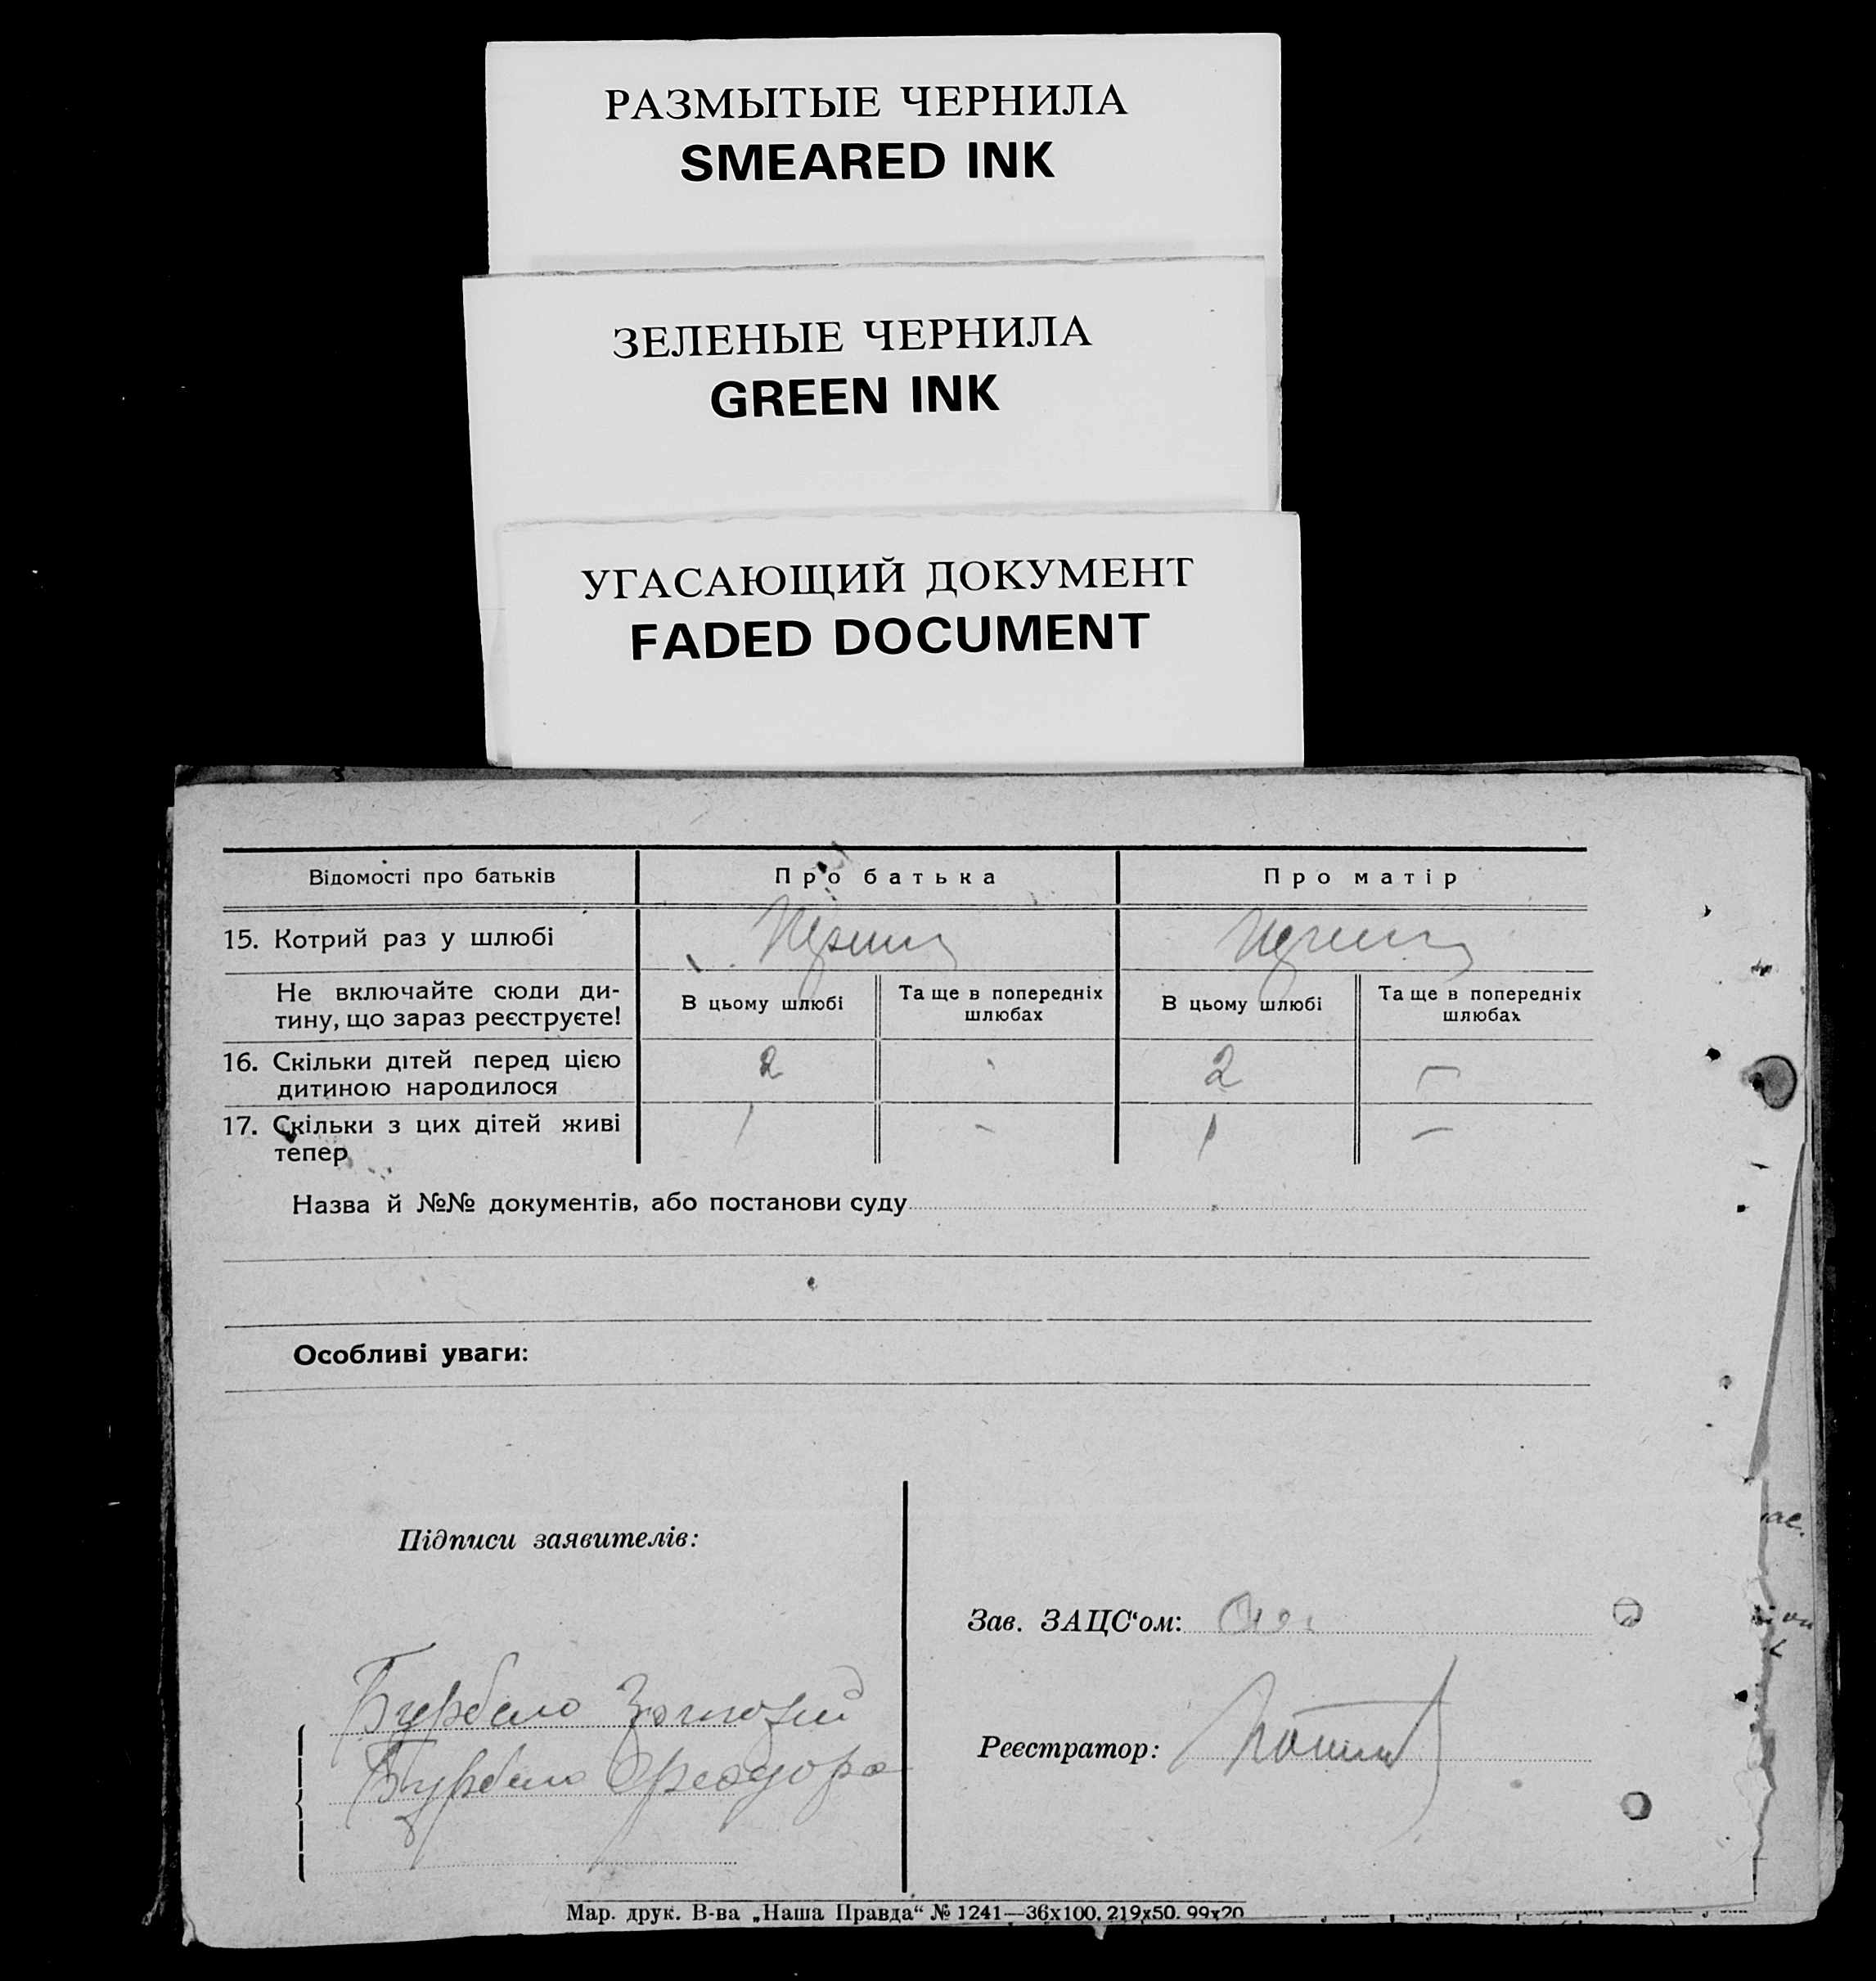 РАЗМЫТЫЕ ЧЕРНИЛА
SMEARED INK
ЗЕЛЕНЫЕ ЧЕРНИЛА
GREEN INK
УГАСАЮЩИЙ ДОКУМЕНТ
FADED DOCUMENT
Відомості про батьків Про батька Про матір
15. Котрий раз у шлюбі
Не включайте сюди ди-
тину, що зараз реєструєте!
В цьому шлюбі Та ще в попередніх
шлюбах
В цьому шлюбі Та ще в попередніх
шлюбах
16. Скільки дітей перед цією
дитиною народилося 2 2 —
17. Скільки з цих дітей живі
тепер 1 - 1 —
Назва й №№ документів, або постанови суду
Особливі уваги:
Підписи заявителів:
Зав. ЗАЦС‘ом:
Бурбело
Реєстратор:
Бурбело
Мар. друк. В-ва „Наша Правда“ № 1241—36х100, 219х50. 99х20